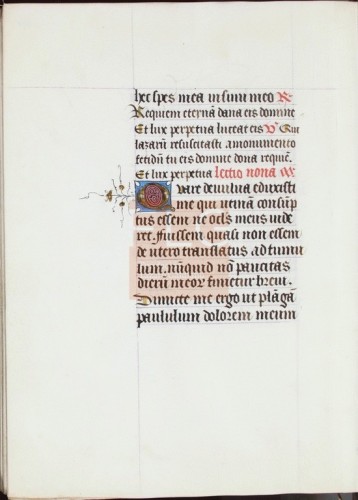 hec spes mea in sinu meo R
Requiem eternā dona eis domine
Et lux perpetua luceat eis V Qui
lazarū resuscitasti a monumento
fetidū tu eis domine dona requiē.
Et lux perpetua lectio nona
Quare de vulva eduxisti
me qui utinā consūp
tus essem ne ocl's meus vide
ret. Fuissem quasi non essem
de utero translatus ad tumu
lum. nūquid nō paucitas
dierū meor finietur brevi.
Dimitte me ergo ut plāgā
paululum dolorem meum